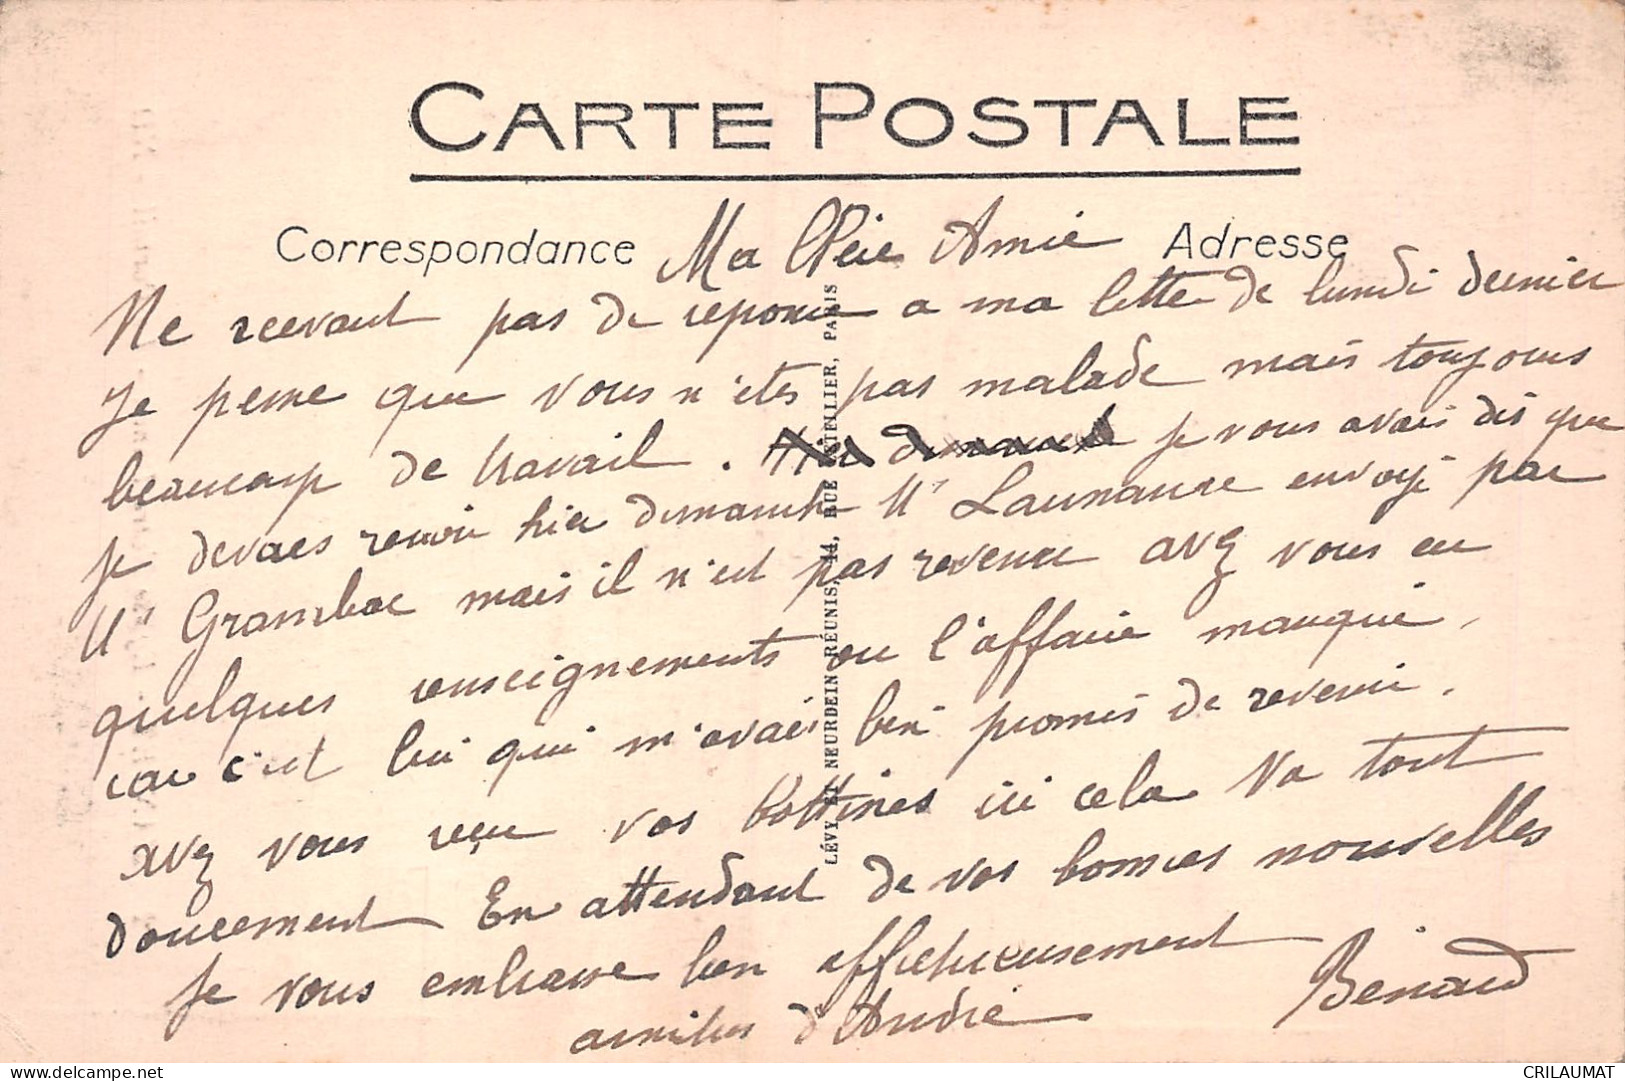 CARTE POSTALE
Correspondance
Adresse
Ma Chère Amie
Ne recevant pas de reponse a ma lettre de lundi dernier
je pense que vous n'êtes pas malade mais toujours
beaucoup de travail. je vous avais dis que
je devais revoir hier dimanche Mr envoyé par
Mr mais il n'est pas revenu avez vous eu
quelques renseignements ou l'affaire manqué,
car c'est lui qui m'avait bien promis de revenir.
avez vous reçu vos bottines ici cela va tout
doucement En attendant de vos bonnes nouvelles
Je vous embrasse bien affectueusement
amities d'André Bénard
LÉVY ET NEURDEIN RÉUNIS, 44, RUE LETELLIER, PARIS
delcampe.net
CRILAUMAT